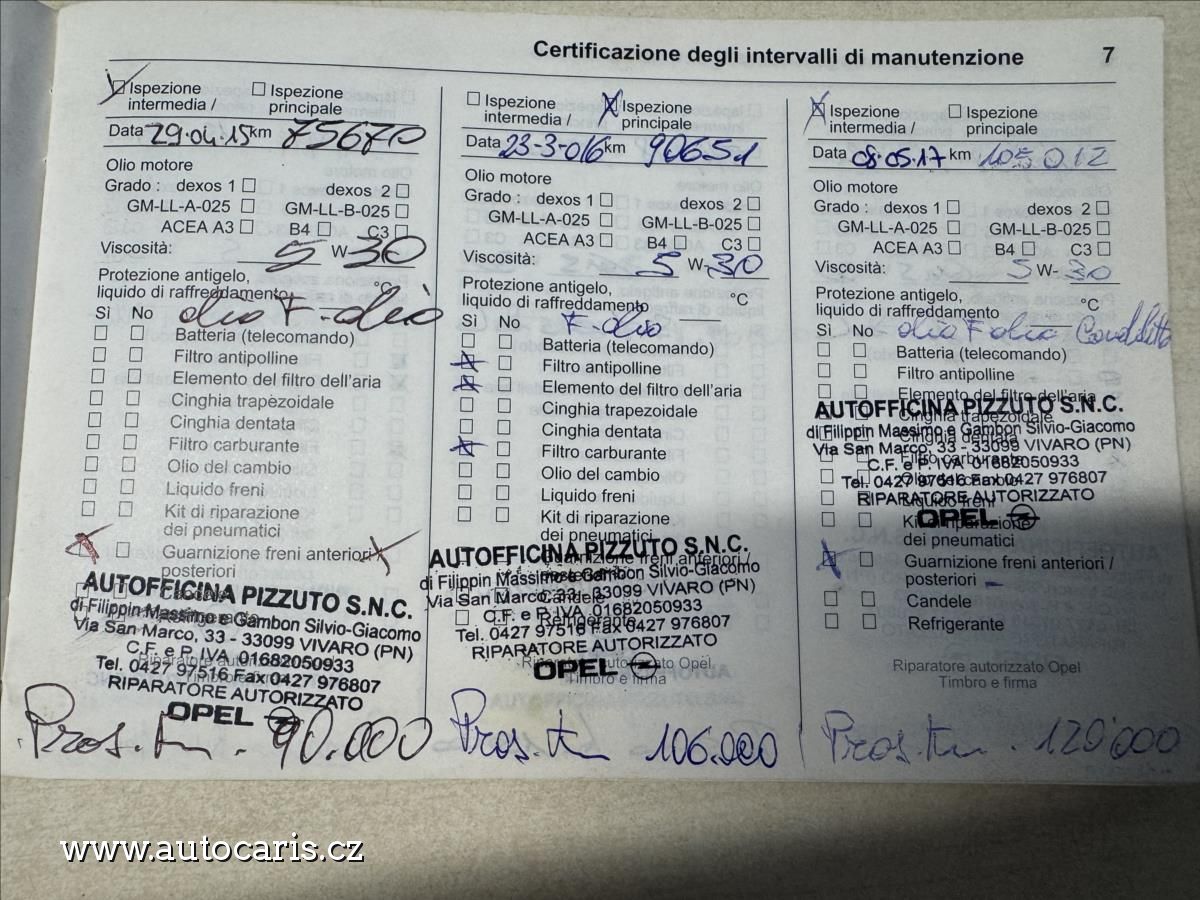 Certificazione degli intervalli di manutenzione 7
Ispezione intermedia /
Ispezione principale
Data 29.04.15 km 75670
Olio motore
Grado : dexos 1 dexos 2
GM-LL-A-025 GM-LL-B-025
ACEA A3 B4 C3
Viscosità: 5 W- 30
Protezione antigelo,
liquido di raffreddamento °C
Sì No olio F-olio
Batteria (telecomando)
Filtro antipolline
Elemento del filtro dell'aria
Cinghia trapezoidale
Cinghia dentata
Filtro carburante
Olio del cambio
Liquido freni
Kit di riparazione
dei pneumatici
Guarnizione freni anteriori
posteriori
AUTOFFICINA PIZZUTO S.N.C.
di Filippin Massimo e Gambon Silvio-Giacomo
Via San Marco, 33 - 33099 VIVARO (PN)
C.F. e P. IVA 01682050933
Tel. 0427 97516 Fax 0427 976807
RIPARATORE AUTORIZZATO
OPEL
Pros. 90.000
Ispezione intermedia /
Ispezione principale
Data 23-3-016 km 90651
Olio motore
Grado : dexos 1 dexos 2
GM-LL-A-025 GM-LL-B-025
ACEA A3 B4 C3
Viscosità: 5 W- 30
Protezione antigelo,
liquido di raffreddamento °C
Sì No F-olio
Batteria (telecomando)
Filtro antipolline
Elemento del filtro dell'aria
Cinghia trapezoidale
Cinghia dentata
Filtro carburante
Olio del cambio
Liquido freni
Kit di riparazione
dei pneumatici
Guarnizione freni anteriori /
Candele
Refrigerante
AUTOFFICINA PIZZUTO S.N.C.
di Filippin Massimo e Gambon Silvio-Giacomo
Via San Marco, 33 - 33099 VIVARO (PN)
C.F. e P. IVA 01682050933
Tel. 0427 97516 Fax 0427 976807
RIPARATORE AUTORIZZATO
Riparatore autorizzato Opel
OPEL
Timbro e firma
Pros. 106.000
Ispezione intermedia /
Ispezione principale
Data 08.05.17 km 105012
Olio motore
Grado : dexos 1 dexos 2
GM-LL-A-025 GM-LL-B-025
ACEA A3 B4 C3
Viscosità: 5 W- 30
Protezione antigelo,
liquido di raffreddamento °C
Sì No olio F olio
Batteria (telecomando)
Filtro antipolline
Elemento del filtro dell'aria
Cinghia trapezoidale
Cinghia dentata
Filtro carburante
Olio del cambio
Liquido freni
Kit di riparazione
dei pneumatici
AUTOFFICINA PIZZUTO S.N.C.
di Filippin Massimo e Gambon Silvio-Giacomo
Via San Marco, 33 - 33099 VIVARO (PN)
C.F. e P. IVA 01682050933
Tel. 0427 97516 Fax 0427 976807
RIPARATORE AUTORIZZATO
OPEL
Guarnizione freni anteriori /
posteriori
Candele
Refrigerante
Riparatore autorizzato Opel
Timbro e firma
Pros. 120.000
www.autocaris.cz